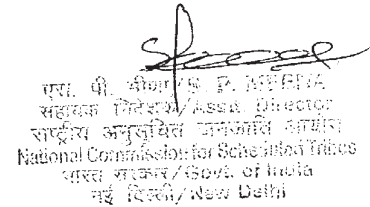 एस. पी. मीणा/S. P. MEENA
सहायक निदेशक/Asstt. Director
राष्ट्रीय अनुसूचित जनजाति आयोग
National Commission for Scheduled Tribes
भारत सरकार/Govt. of India
नई दिल्ली/New Delhi